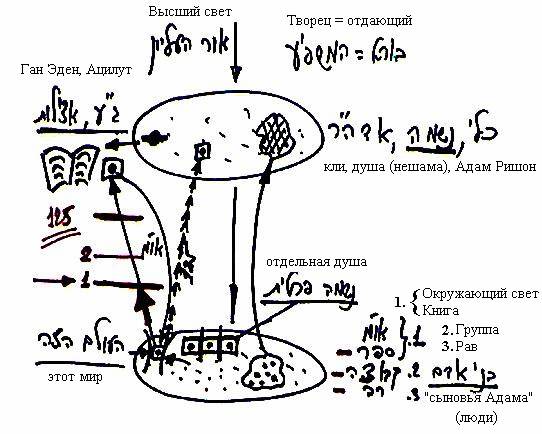 Высший свет
אור העליון
Творец = отдающий
בורא = המשפיע
Ган Эден, Ацилут
ג"ע, אצילות
כלי, נשמה, אדה"ר
кли, душа (нешама), Адам Ришон
125
2
או"מ
1
отдельная душа
נשמה פרטית
העולם הזה
этот мир
1. { Окружающий свет
Книга
2. Группа
3. Рав
או"מ
ספר } .1
קבוצה .2
רב .3
בני אדם
"сыновья Адама"
(люди)